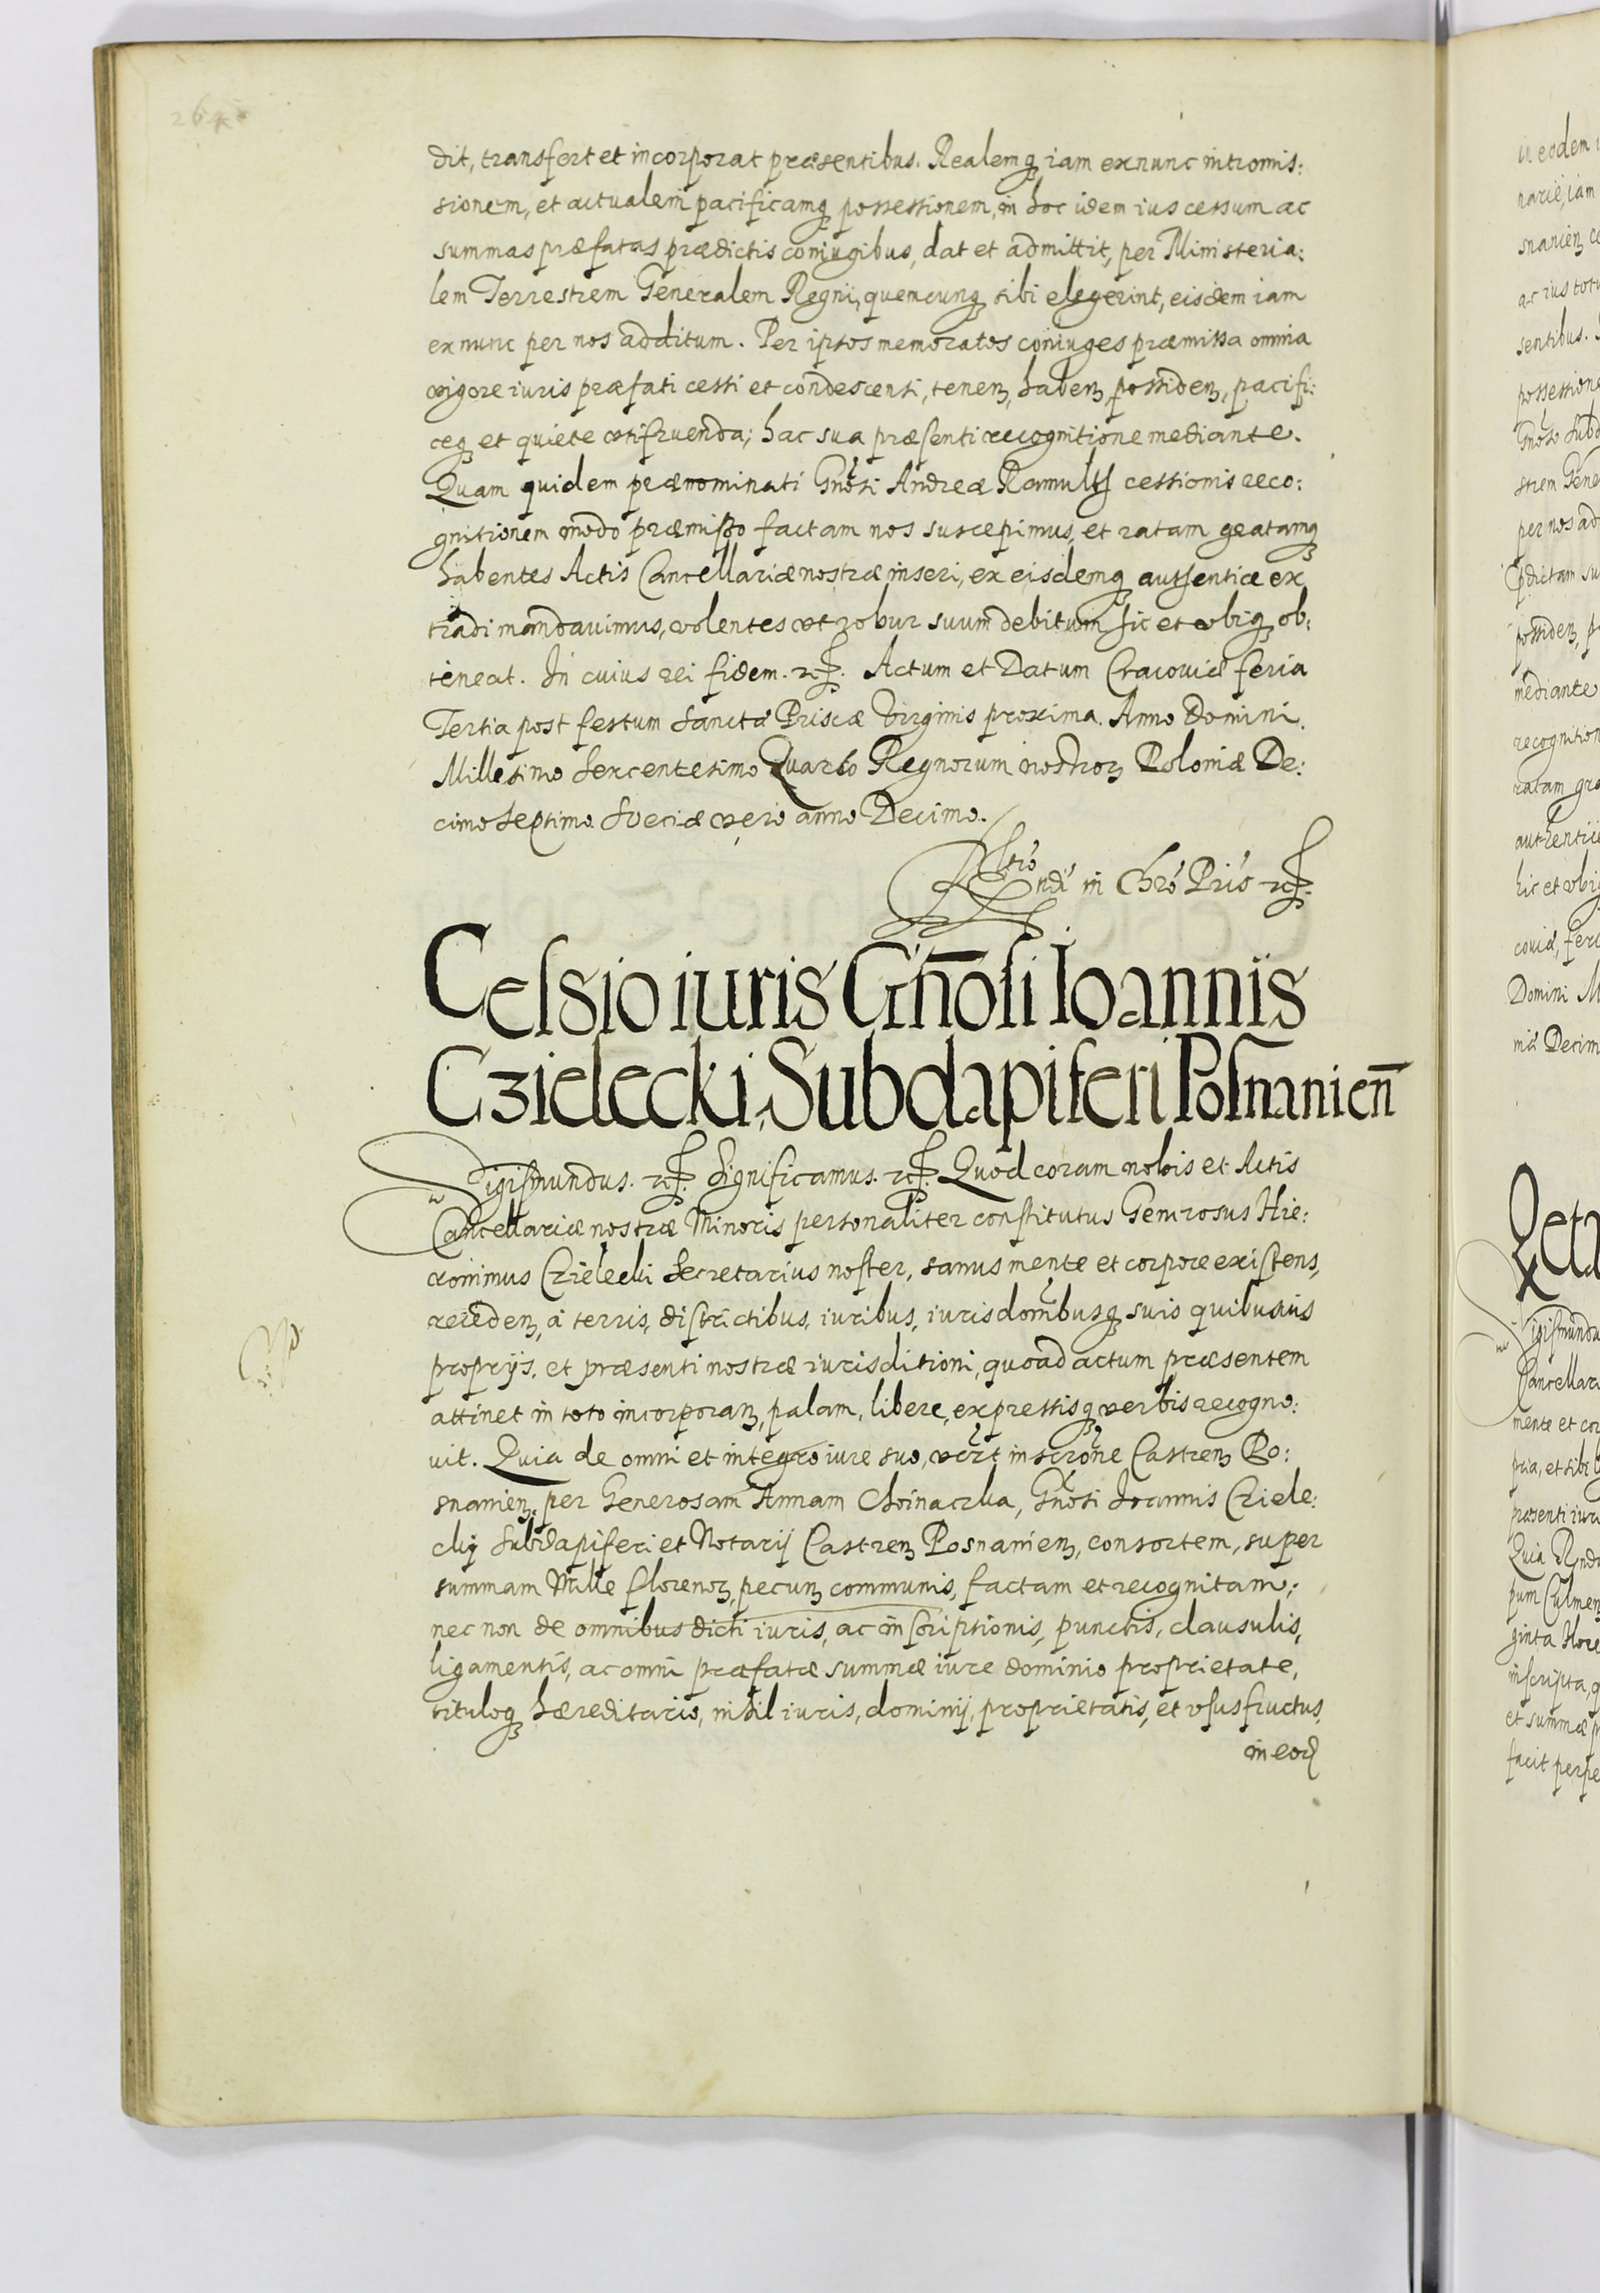 dit, transfert et incorporat præsentibus. Realemq; iam ex nunc intromis:
sionem, et actualem pacificamq; possessionem, in hoc idem ius cessum ac
summas præfatas prædictis coniugibus, dat et admittit, per Ministeria:
lem Terrestrem Generalem Regni, quencunq; sibi elegerint, eisdem iam
ex nunc per nos additum. Per ipsos memoratos coniuges præmissa omnia
vigore iuris præfati cessi et condescensi, tenen, haben, possiden, pacifi:
ceq; et quiete vtifruenda; hac sua præsenti recognitione mediante.
Quam quidem prænominati Gnosi Andreæ Ramulth cessionis reco:
gnitionem modo præmisso factam nos suscepimus, et ratam gratamq;
habentes Actis Cancellariæ nostræ inseri, ex eisdemq; authenticæ ex
tradi mandauimus, volentes vt robur suum debitum hic et vbiq; ob:
tineat. In cuius rei fidem. etc. Actum et Datum Cracouiæ feria
Tertia post festum Sanctæ Priscæ Virginis proxima. Anno Domini.
Millesimo Sexcentesimo Quarto Regnorum nostror Poloniæ De:
cimo Septimo. Sueciæ vero anno Decimo.
Rltio Rndi in Chro Pris etc.
Cessio iuris Gnosi Ioannis
Czielecki, Subdapiferi Posnanien
Sigismundus. etc. Significamus. etc. Quod coram nobis et Actis
Cancellariæ nostræ Minoris personaliter constitutus Generosus Hie:
ronimus Czielecki Secretarius noster, sanus mente et corpore existens,
receden, à terris, districtibus, iuribus, iurisdonibusq; suis quibusuis
proprijs. et præsenti nostræ iurisditioni, quoad actum præsentem
attinet in toto incorporan, palam, libere, expressisq; verbis recogno:
uit. Quia de omni et integro iure suo, inscrone Castren Po:
snanien, per Generosam Annam Choinaczka, Gnosi Ioannis Cziele:
ckij Subdapiferi et Notarij Castren Posnanien, consortem, super
summam Mille florenor, pecun communis, factam et recognitam;
nec non de omnibus dicti iuris, ac inscriptionis, punctis, clausulis,
ligamentis, ac omni præfatæ summæ iure dominio proprietate,
tituloq; hæreditario, nihil iuris, dominij, proprietatis, et vsusfructus,
in eod